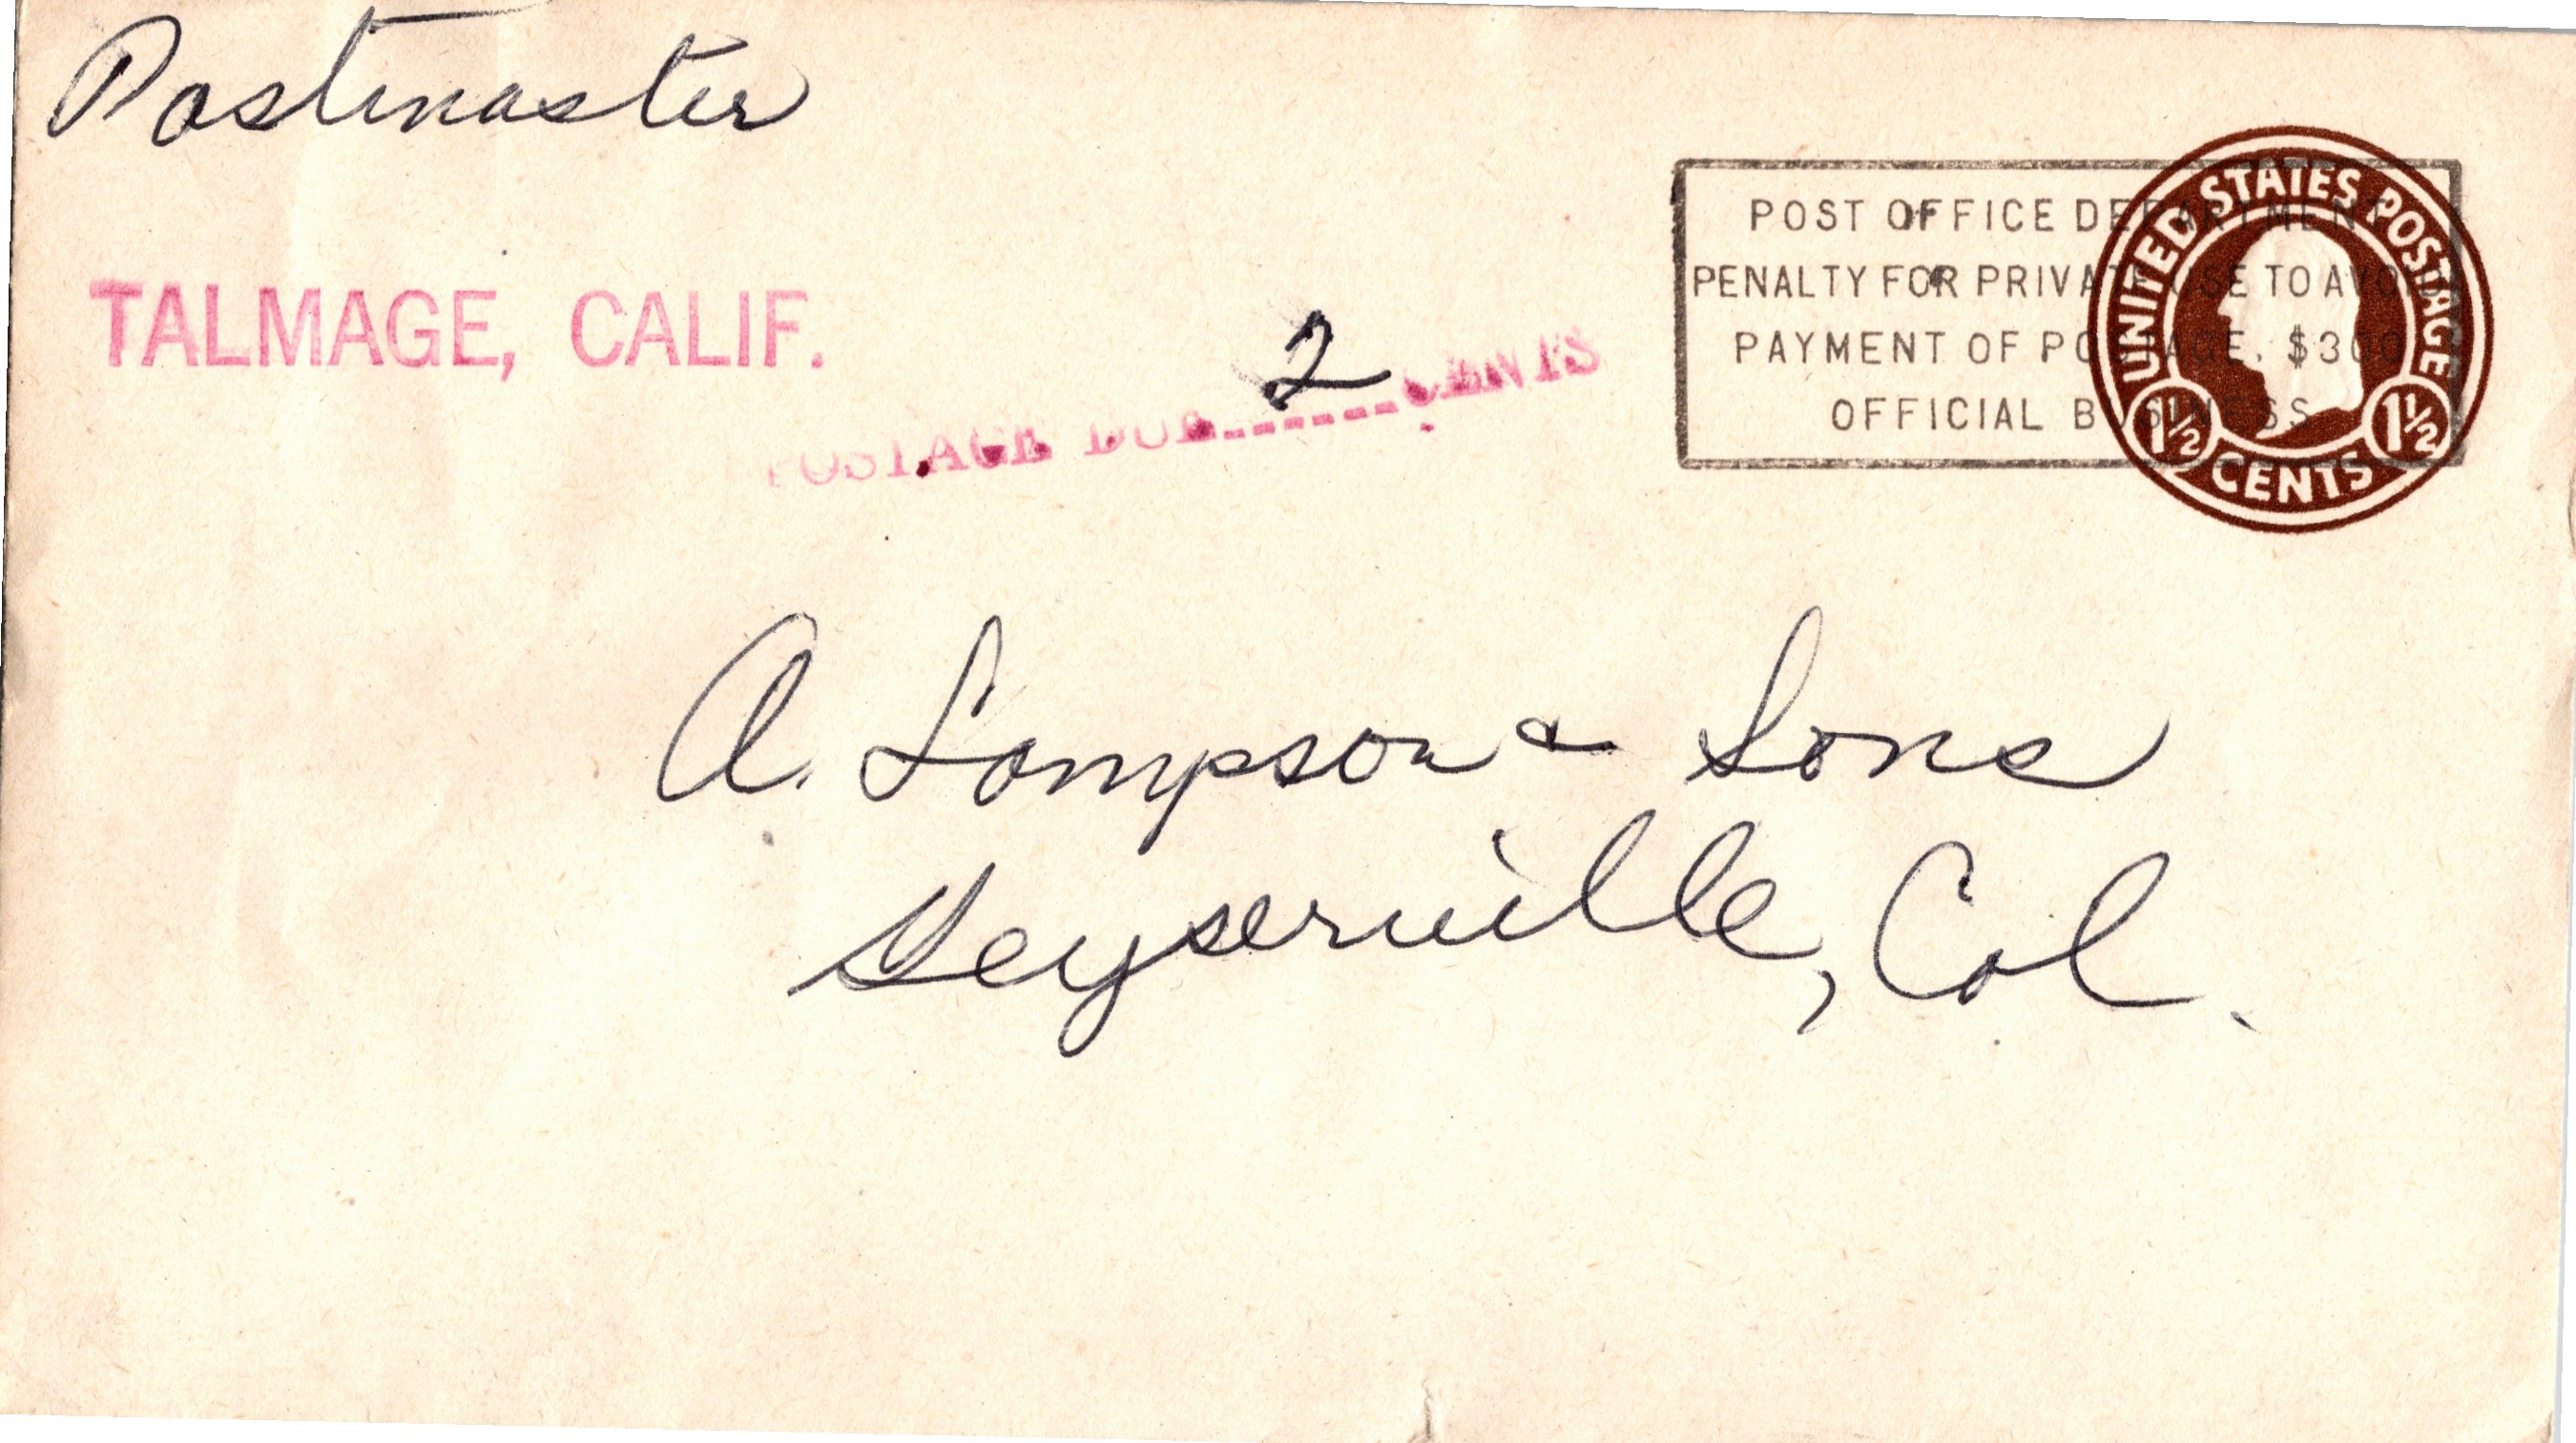 Postmaster
TALMAGE, CALIF.
POSTAGE DUE 2 CENTS
POST OFFICE DEPARTMENT
PENALTY FOR PRIVATE USE TO AVOID
PAYMENT OF POSTAGE, $300
OFFICIAL BUSINESS
UNITED STATES POSTAGE
1½ 1½
CENTS
A. Lampson & Sons
Geyserville, Cal.